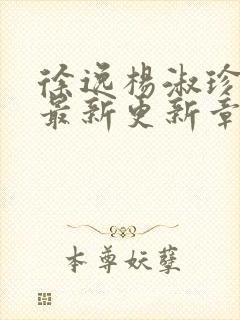 徐逸杨淑珍
最新更新章
本尊妖孽